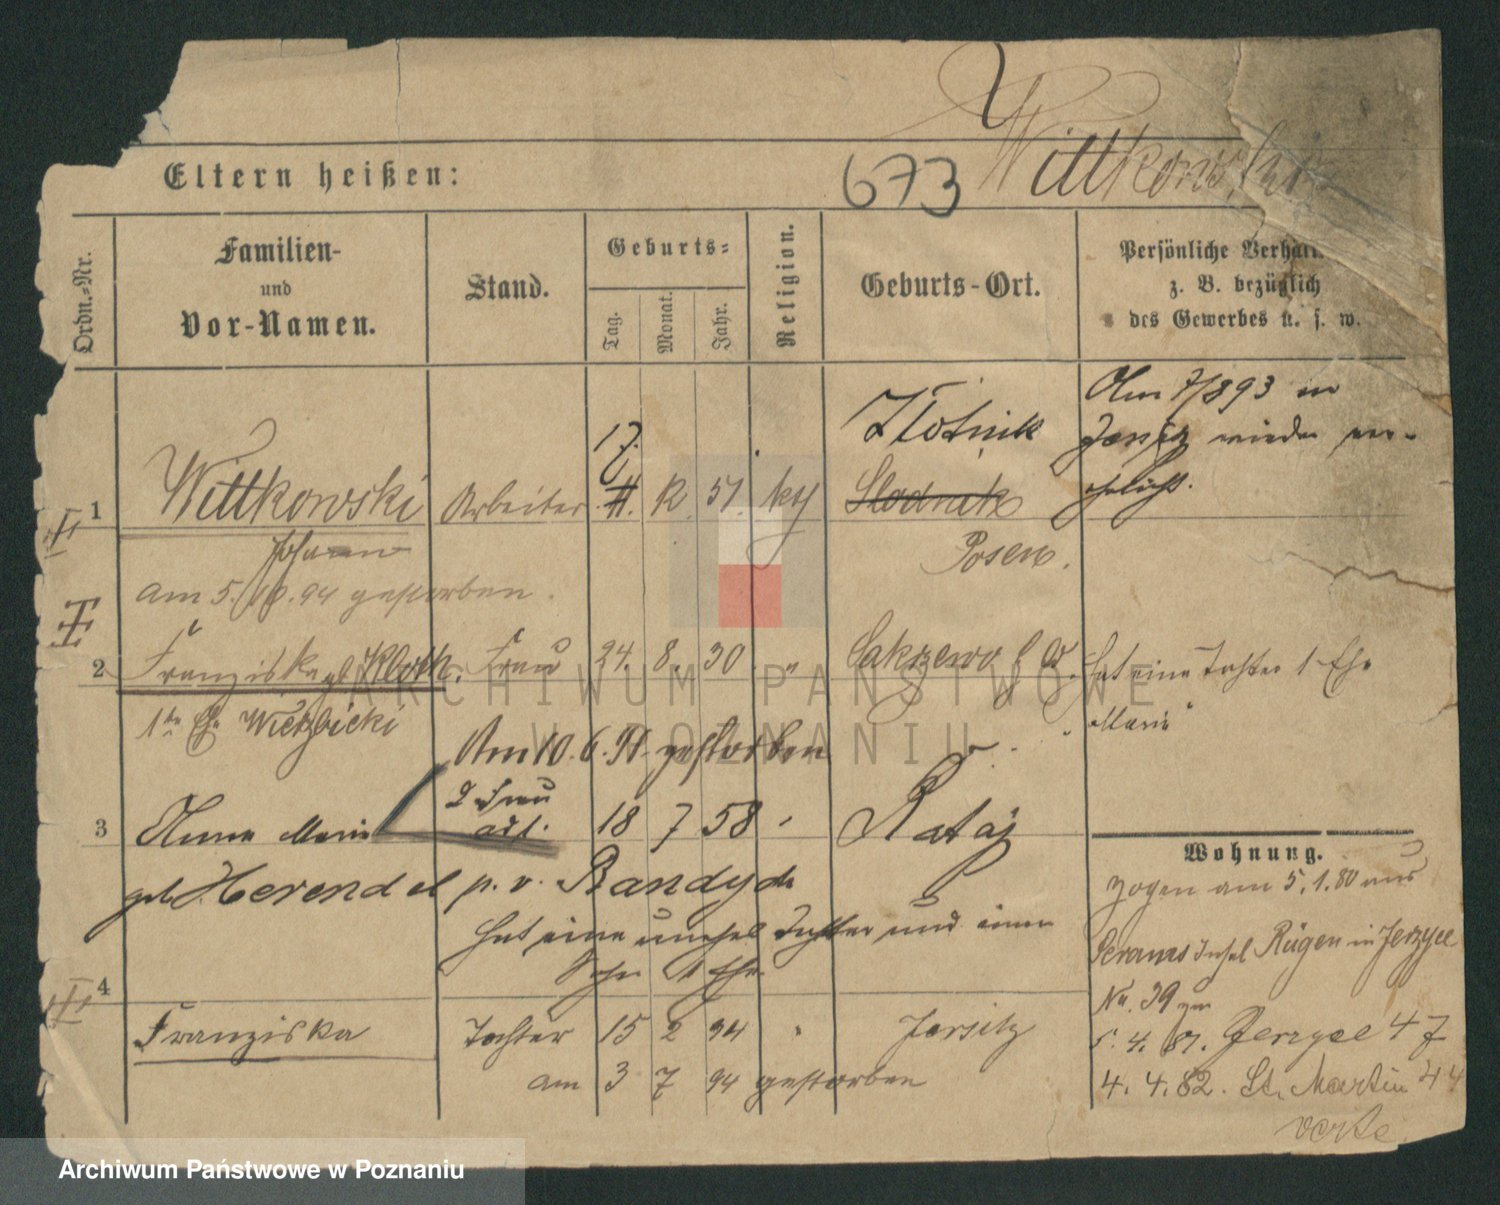 Wittkowski
673
Eltern heißen:
Ordn.-Nr.
Familien-
und
Vor-Namen.
Stand.
Geburts-
Tag.
Monat.
Jahr.
Religion.
Geburts-Ort.
Persönliche Verhält
z. B. bezüglich
des Gewerbes u. s. w.
Am 7/893 in
Jersitz wieder ver-
ehelicht.
17.
Złotnik
1 Wittkowski Arbeiter 51. kth Slodnik
Johann Posen.
am 5. 10. 94 gestorben.
2 Franziska geb Kloth. Frau 24. 8. 30 " Sakrzewo hat eine Tochter 1 Ehe
1te Ehe Wierzbicki Marie
Am 10. 6. 91 gestorben
2 Frau
3 Anna Marie 18 7 58 " Rataj
geb Herendel p. v. Bandych
hat eine unehel Tochter und einen
Sohn 1 Ehe
4
Franziska Tochter 15 2 94 " Jersitz
am 3 7 94 gestorben
Wohnung.
zogen am 5. 1. 80 aus
Insel Rügen in Jerzyce
No. 39
5. 4. 81. Jerzyce 47
4. 4. 82. St. Martin 44
verte
ARCHIWUM PAŃSTWOWE
W POZNANIU
Archiwum Państwowe w Poznaniu